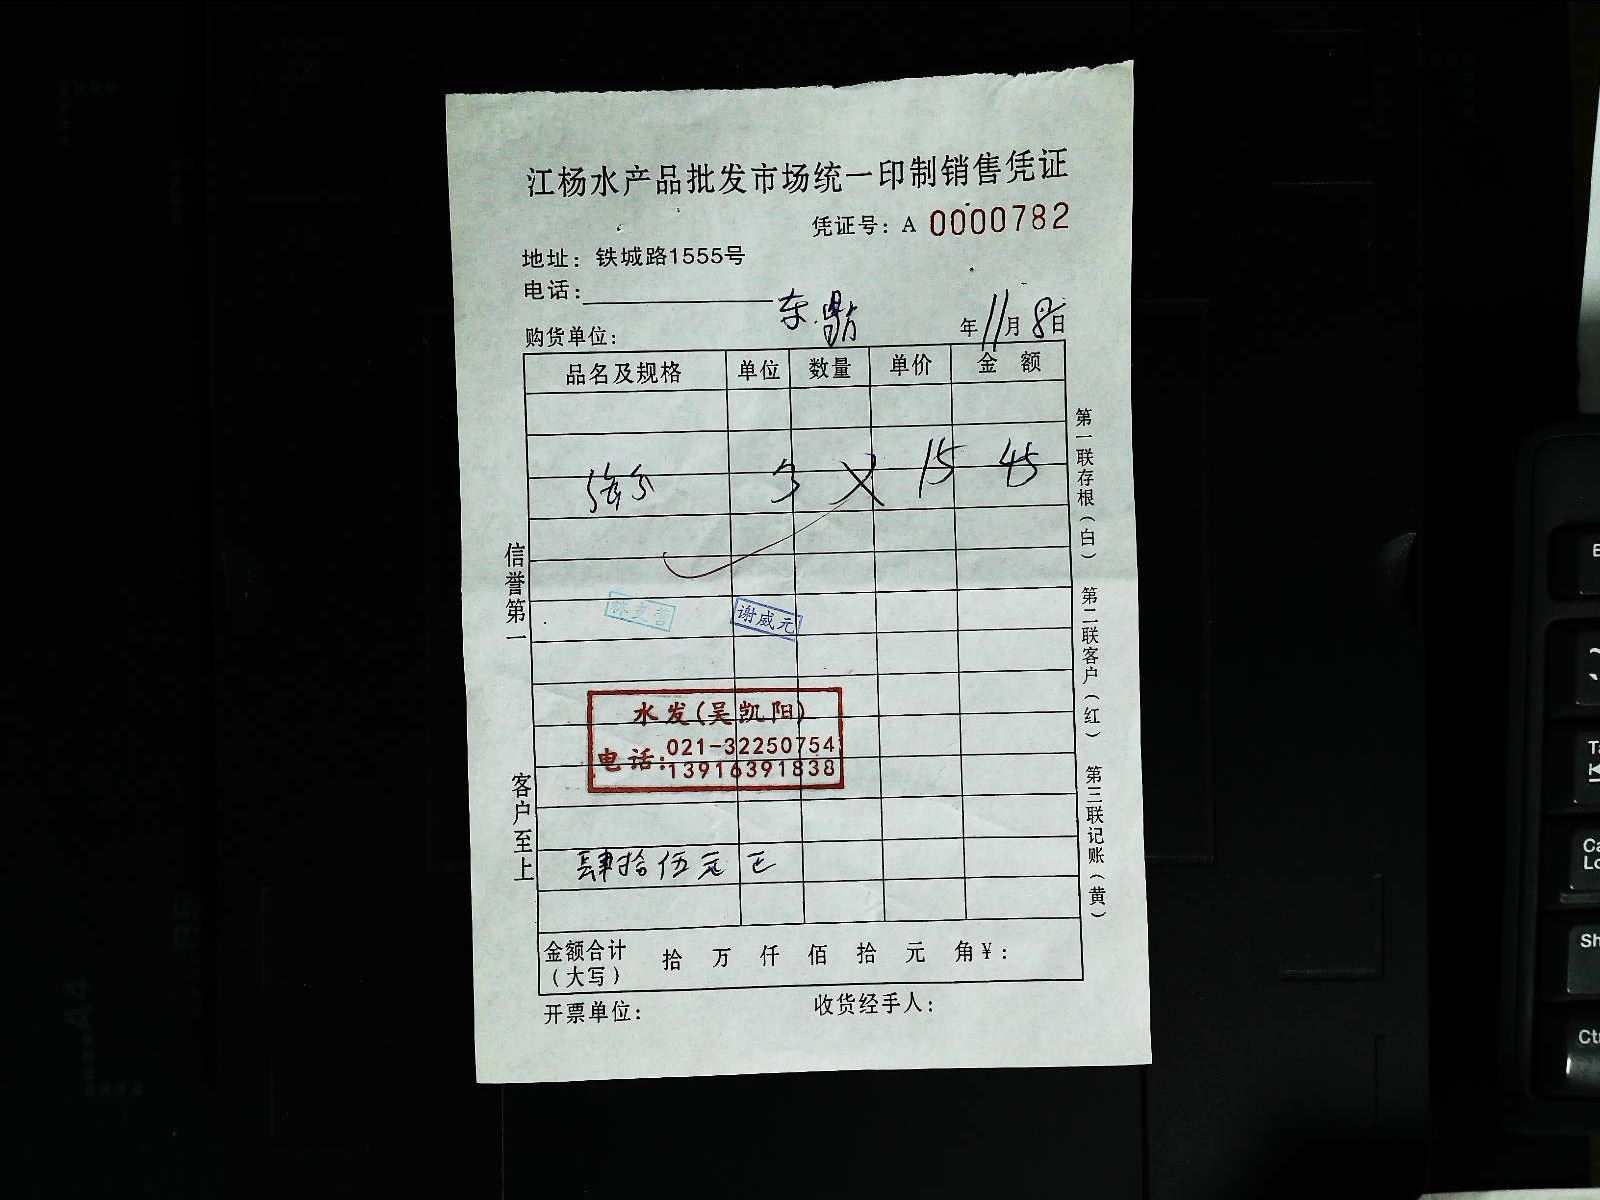 江杨水产品批发市场统一印制销售凭证
凭证号：A 0000782
地址：铁城路1555号
电话：
购货单位：
年11月8日
品名及规格 单位 数量 单价 金 额
3 × 15 45
谢威元
水发(吴凯阳)
电话：021-32250754
13916391838
肆拾伍元正
金额合计
（大写）
拾 万 仟 佰 拾 元 角￥：
开票单位： 收货经手人：
信誉第一
客户至上
第一联存根（白）
第二联客户（红）
第三联记账（黄）